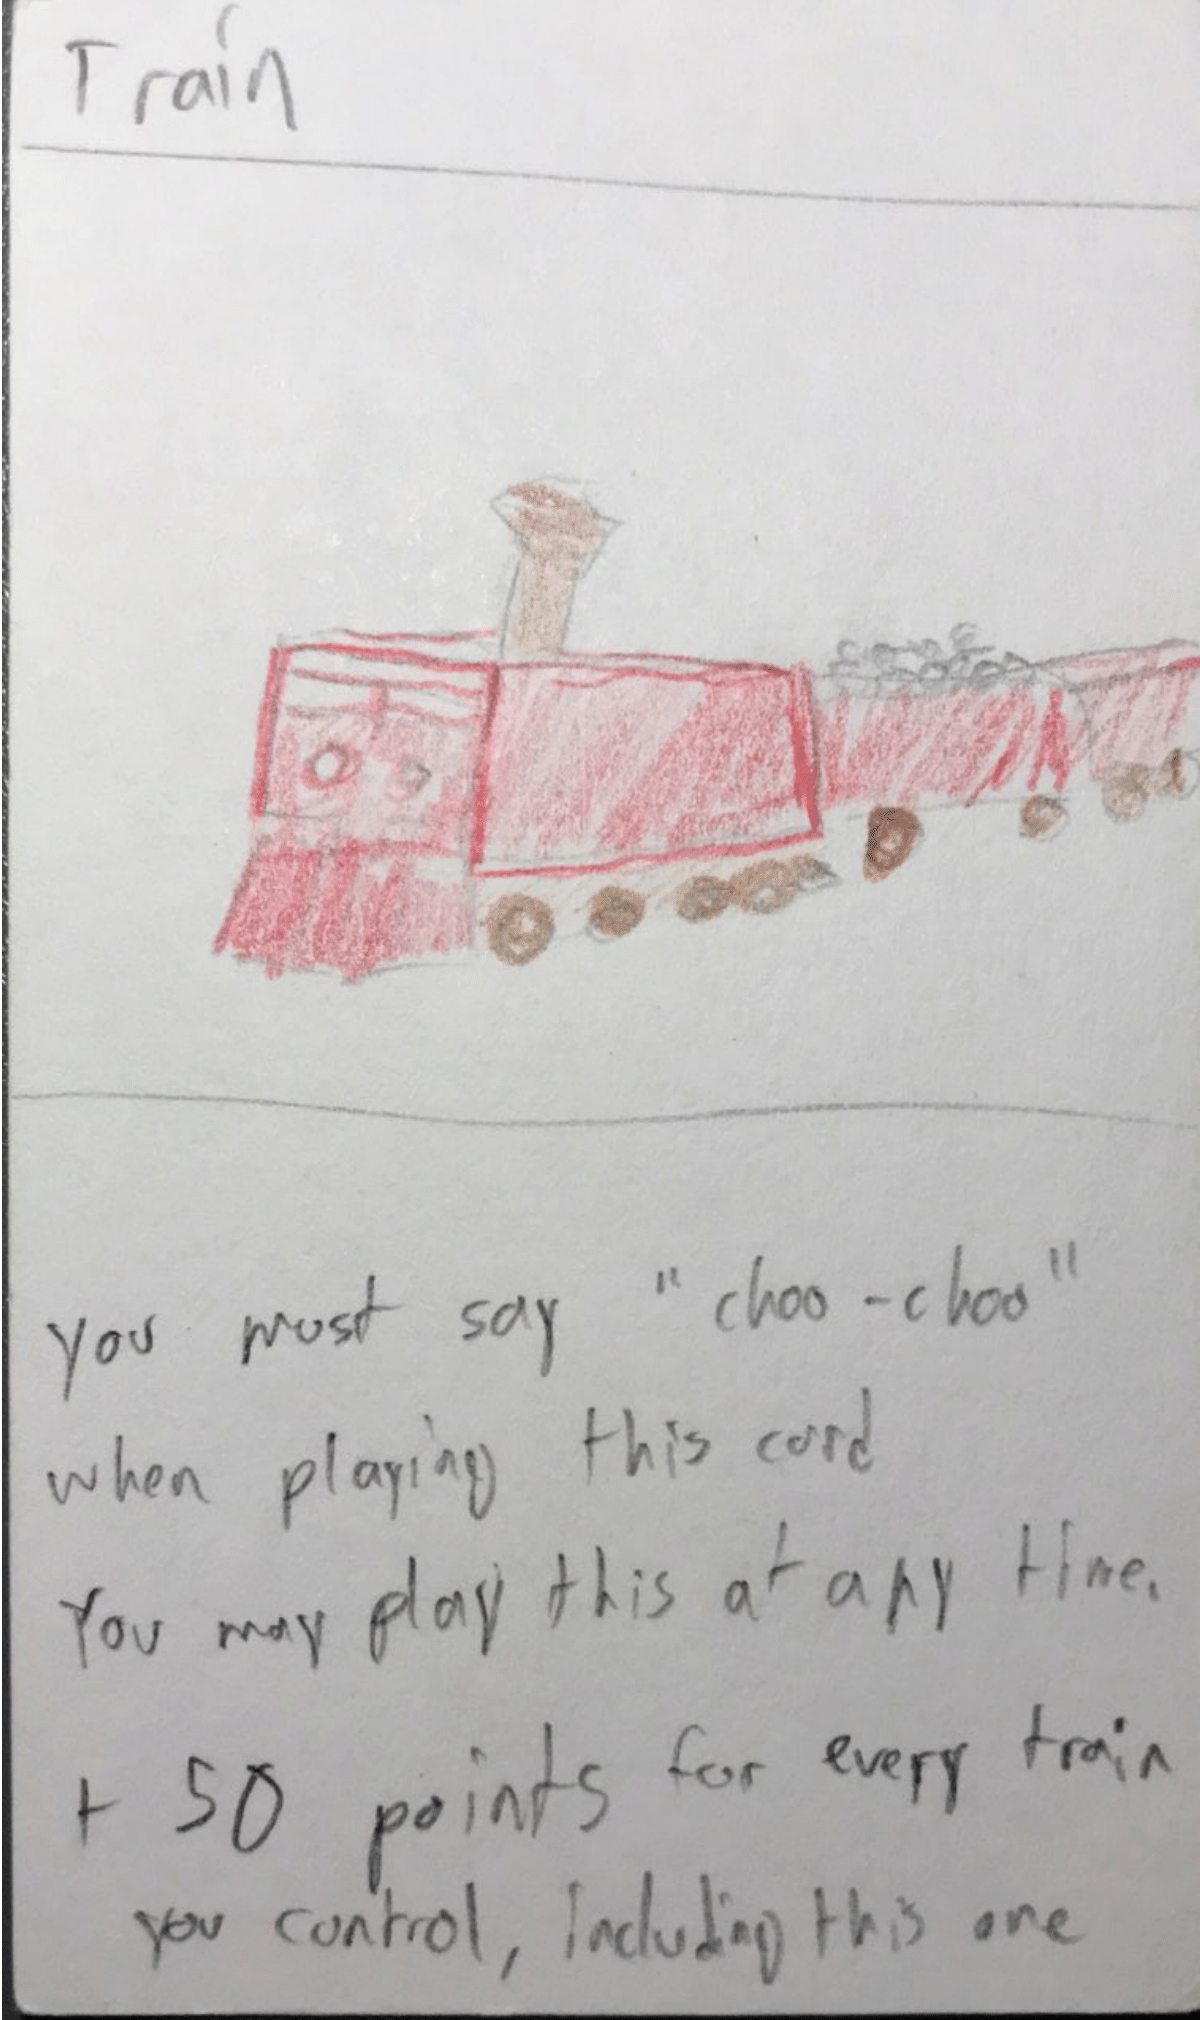 Train
you must say "choo-choo"
when playing this card
You may play this at any time.
+ 50 points for every train
you control, including this one